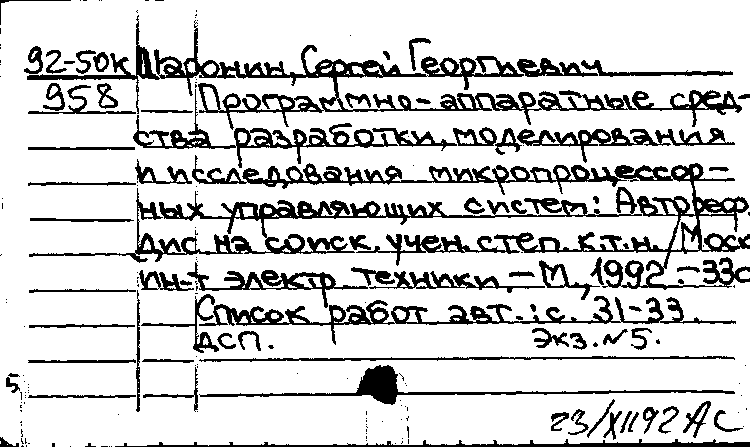 92-50к Шаронин, Сергей Георгиевич
958 Программно-аппаратные сред-
ства разработки, моделирования
и исследования микропроцессор-
ных управляющих систем: Автореф.
Дис на соиск. учен. степ. к.т.н. / Моск
ин-т электр. техники. – М., 1992. – 33с
Список работ авт.: с. 31-33.
ДСП. Экз. №5.
5
23/XII 92 АС